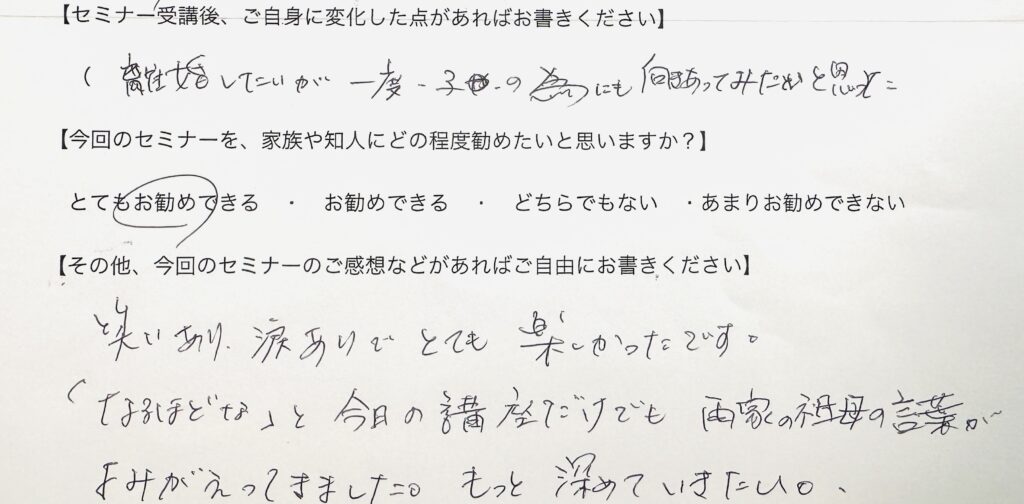 【セミナー受講後、ご自身に変化した点があればお書きください】
離婚したいが 一度、子の為にも 向きあってみたいと思った
【今回のセミナーを、家族や知人にどの程度勧めたいと思いますか？】
とてもお勧めできる ・ お勧めできる ・ どちらでもない ・あまりお勧めできない
【その他、今回のセミナーのご感想などがあればご自由にお書きください】
笑いあり、涙ありで とても 楽しかったです。
「なるほどな」と 今日の講座だけでも 両家の祖母の言葉が
よみがえってきました。 もっと 深めていきたい。